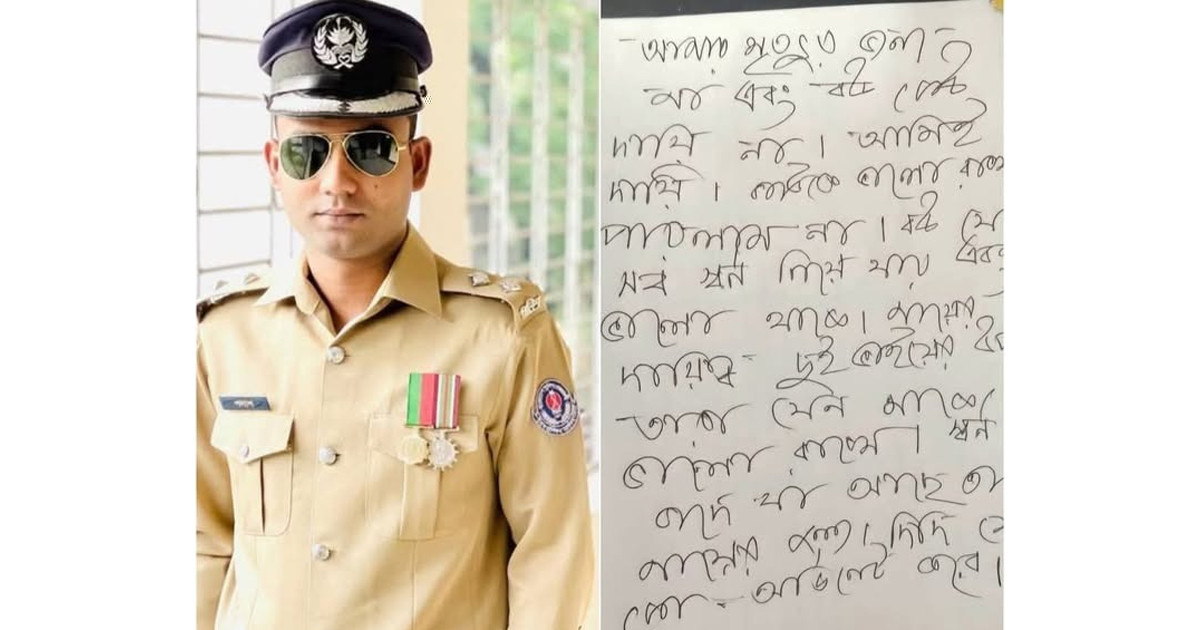 আমার মৃত্যুর জন্য
মা এবং বউ কেউ
দায়ি না। আমিই
দায়ি। কাউকে ভালো রাখতে
পারলাম না। বউ যেন
সব স্বর্ন নিয়ে যায় এবং
ভালো থাকে। মায়ের
দায়িত্ব দুই ভাইয়ের
তারা যেন মাকে
ভালো রাখে। স্বর্ন
বাদে যা আছে তা
মায়ের জন্য। দিদি যেন
কো-অর্ডিনেট করে।